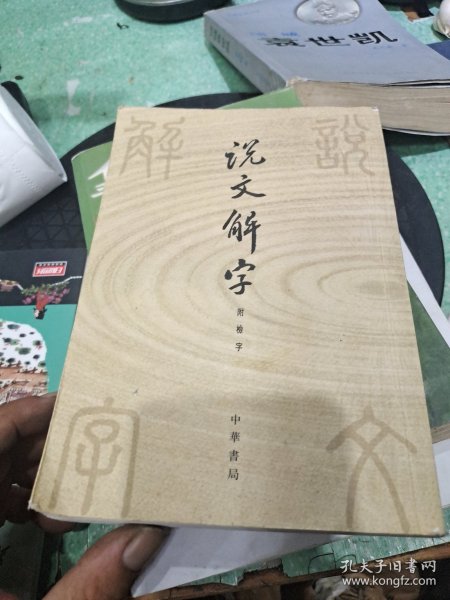 袁世凯
说文解字
附检字
中華書局
説
文
解
字
孔夫子旧书网
www.kongfz.com